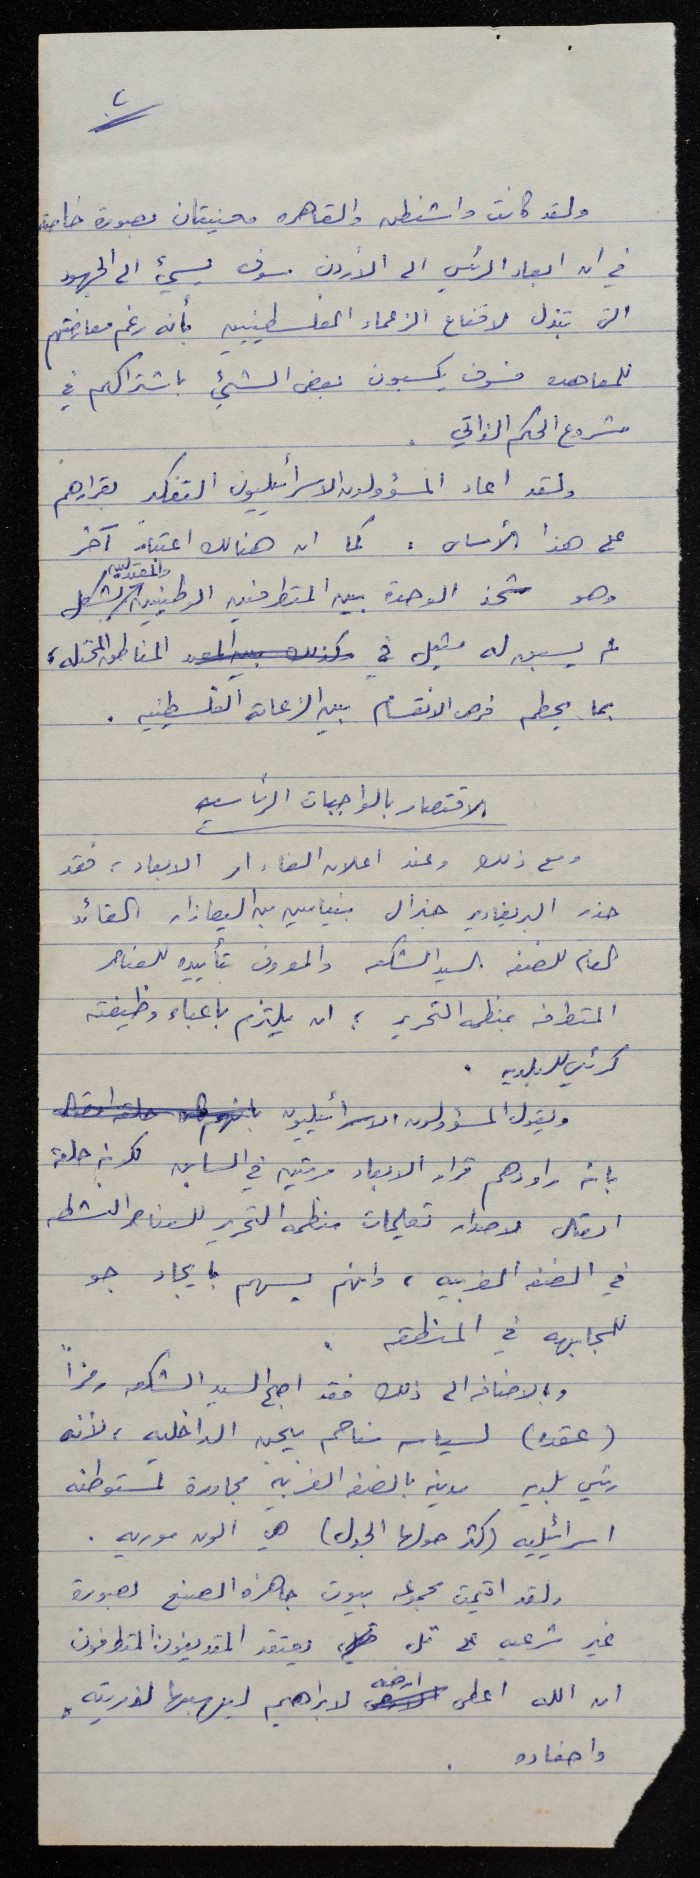 ٧
ولقد كانت واشنطن والقاهره معنيتان بصورة خاصة
في ان ابعاد الرئيس الى الأردن سوف يسيئ الى الجهود
التي تبذل لاقناع الزعماء الفلسطينيين بأنه رغم معارضتهم
للمعاهده فسوف يكسبون بعض الشيئ باشتراكهم في
مشروع الحكم الذاتي .
ولقد اعاد المسؤولون الاسرائيليون التفكير بقرارهم
على هذا الأساس ، كما ان هنالك اعتبار آخر
وهو شحذ الوحدة بين المتطرفين الوطنيين والمعتدلين بشكل
لم يسبق له مثيل في المناطق المحتله ،
بما يحطم فرص الانقسام بين الزعامة الفلسطينيه .
الاقتصار بالواجبات الرئاسيه
ومع ذلك وعند اعلان الغاء امر الابعاد ، فقد
حذر البريغادير جنرال بنيامين بن اليعازار القائد
العام للضفه السيد الشكعه والمعروف بتأييده للعناصر
المتطرفه بمنظمه التحرير ، ان يلتزم باعباء وظيفته
كرئيس للبلديه .
ويقول المسؤولون الاسرائيليون
بانه راودهم قرار الابعاد مرتين في السابق لكونه حلقة
اتصال لاصدار تعليمات منظمه التحرير للعناصر النشطه
في الضفه الغربيه ، وانهم يسهم بايجاد جو
للمجابهه في المنطقه .
وبالاضافه الى ذلك فقد اصبح السيد الشكعه رمزاً
(عقده) لسياسه مناحم بيجن الداخليه ، لأنه
رئيس بلديه مدينه بالضفه الغربيه مجاورة لمستوطنه
اسرائيليه (كثر حولها الجدل) هي الون موريه .
ولقد اقيمت مجموعه بيوت جاهزه الصنع بصورة
غير شرعيه على تله ، يعتقد المتطرفون
ان الله اعطى ارضه لابراهيم ليهبها لذريته
واحفاده .